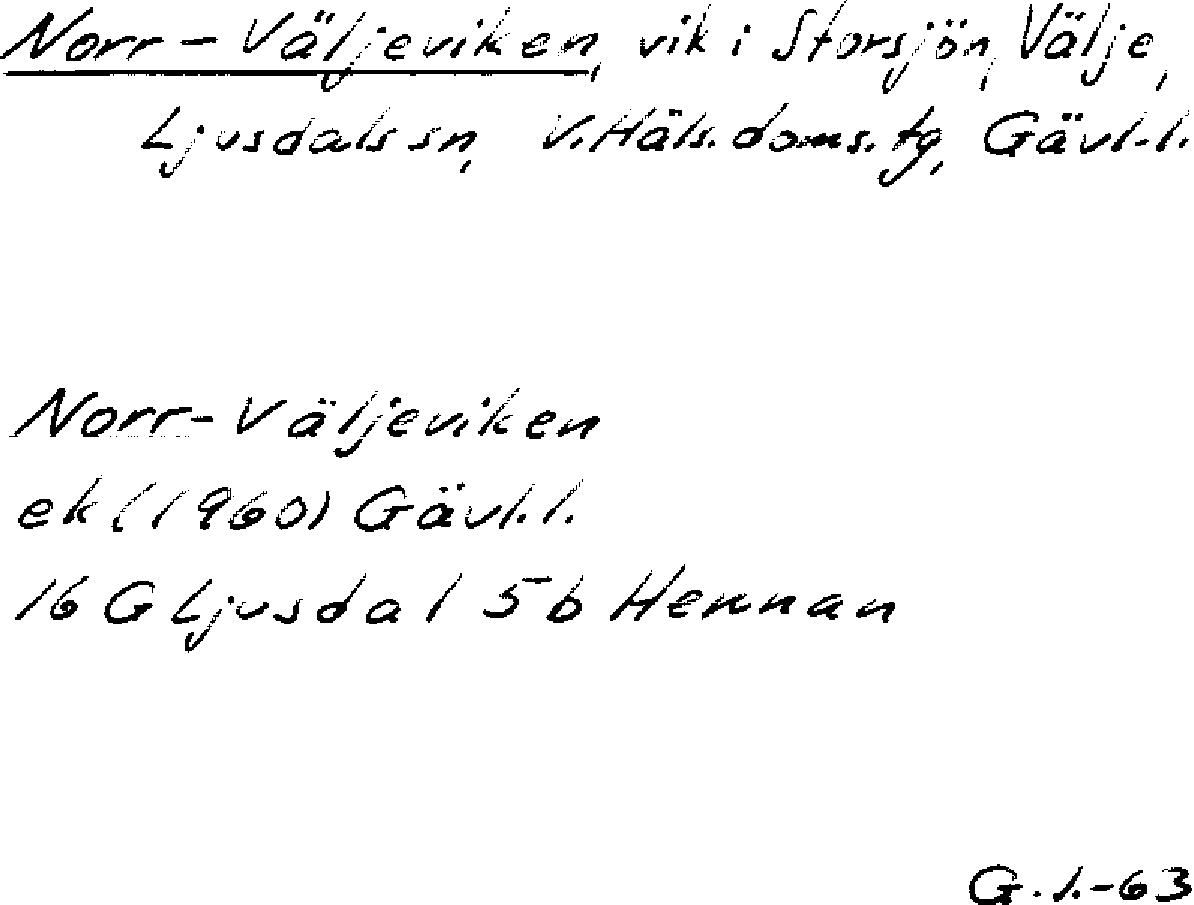 Norr-Väljeviken, vik i Storsjön, Välje,
Ljusdals sn, V.Häls.doms.tg, Gävl.l.
Norr-Väljeviken
ek (1960) Gävl.l.
16 G Ljusdal 5 b Hennan
G.l.-63